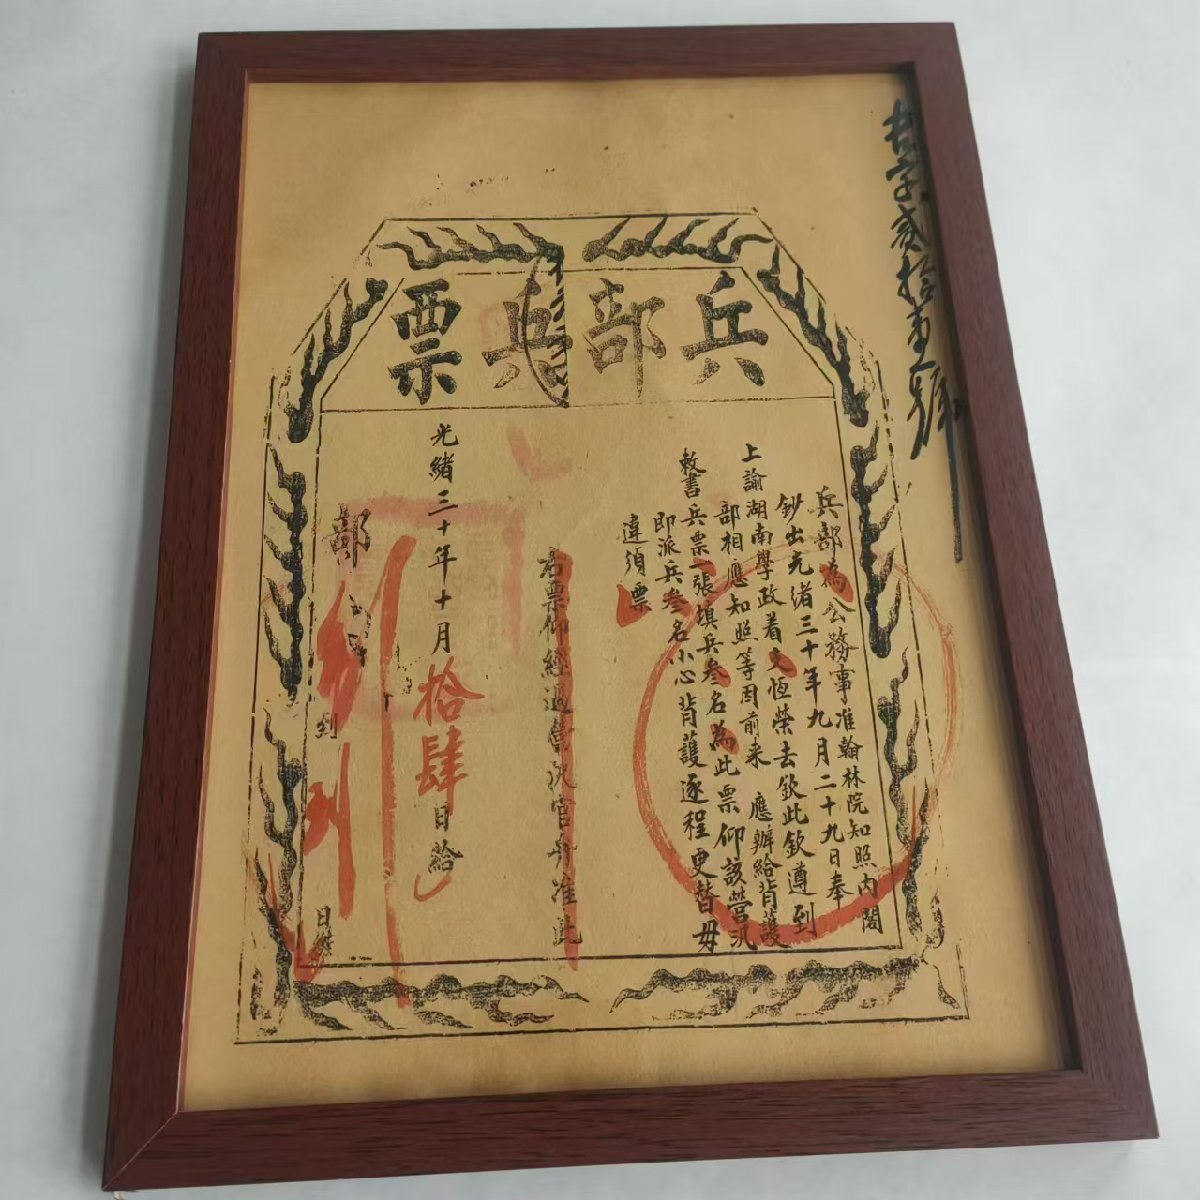 兵部兵票
兵部為公務事准翰林院知照內閣
鈔出光緒三十年九月二十九日奉
上諭湖南學政着文恆榮去欽此欽遵到
部相應知照等因前來 應辦給背護
敕書兵票一張填兵叁名為此票仰該營汛
即派兵叁名小心背護逐程更替毋
違須票
右票仰經過營汛官弁准此
光緒三十年十月拾肆日給
部
到
日